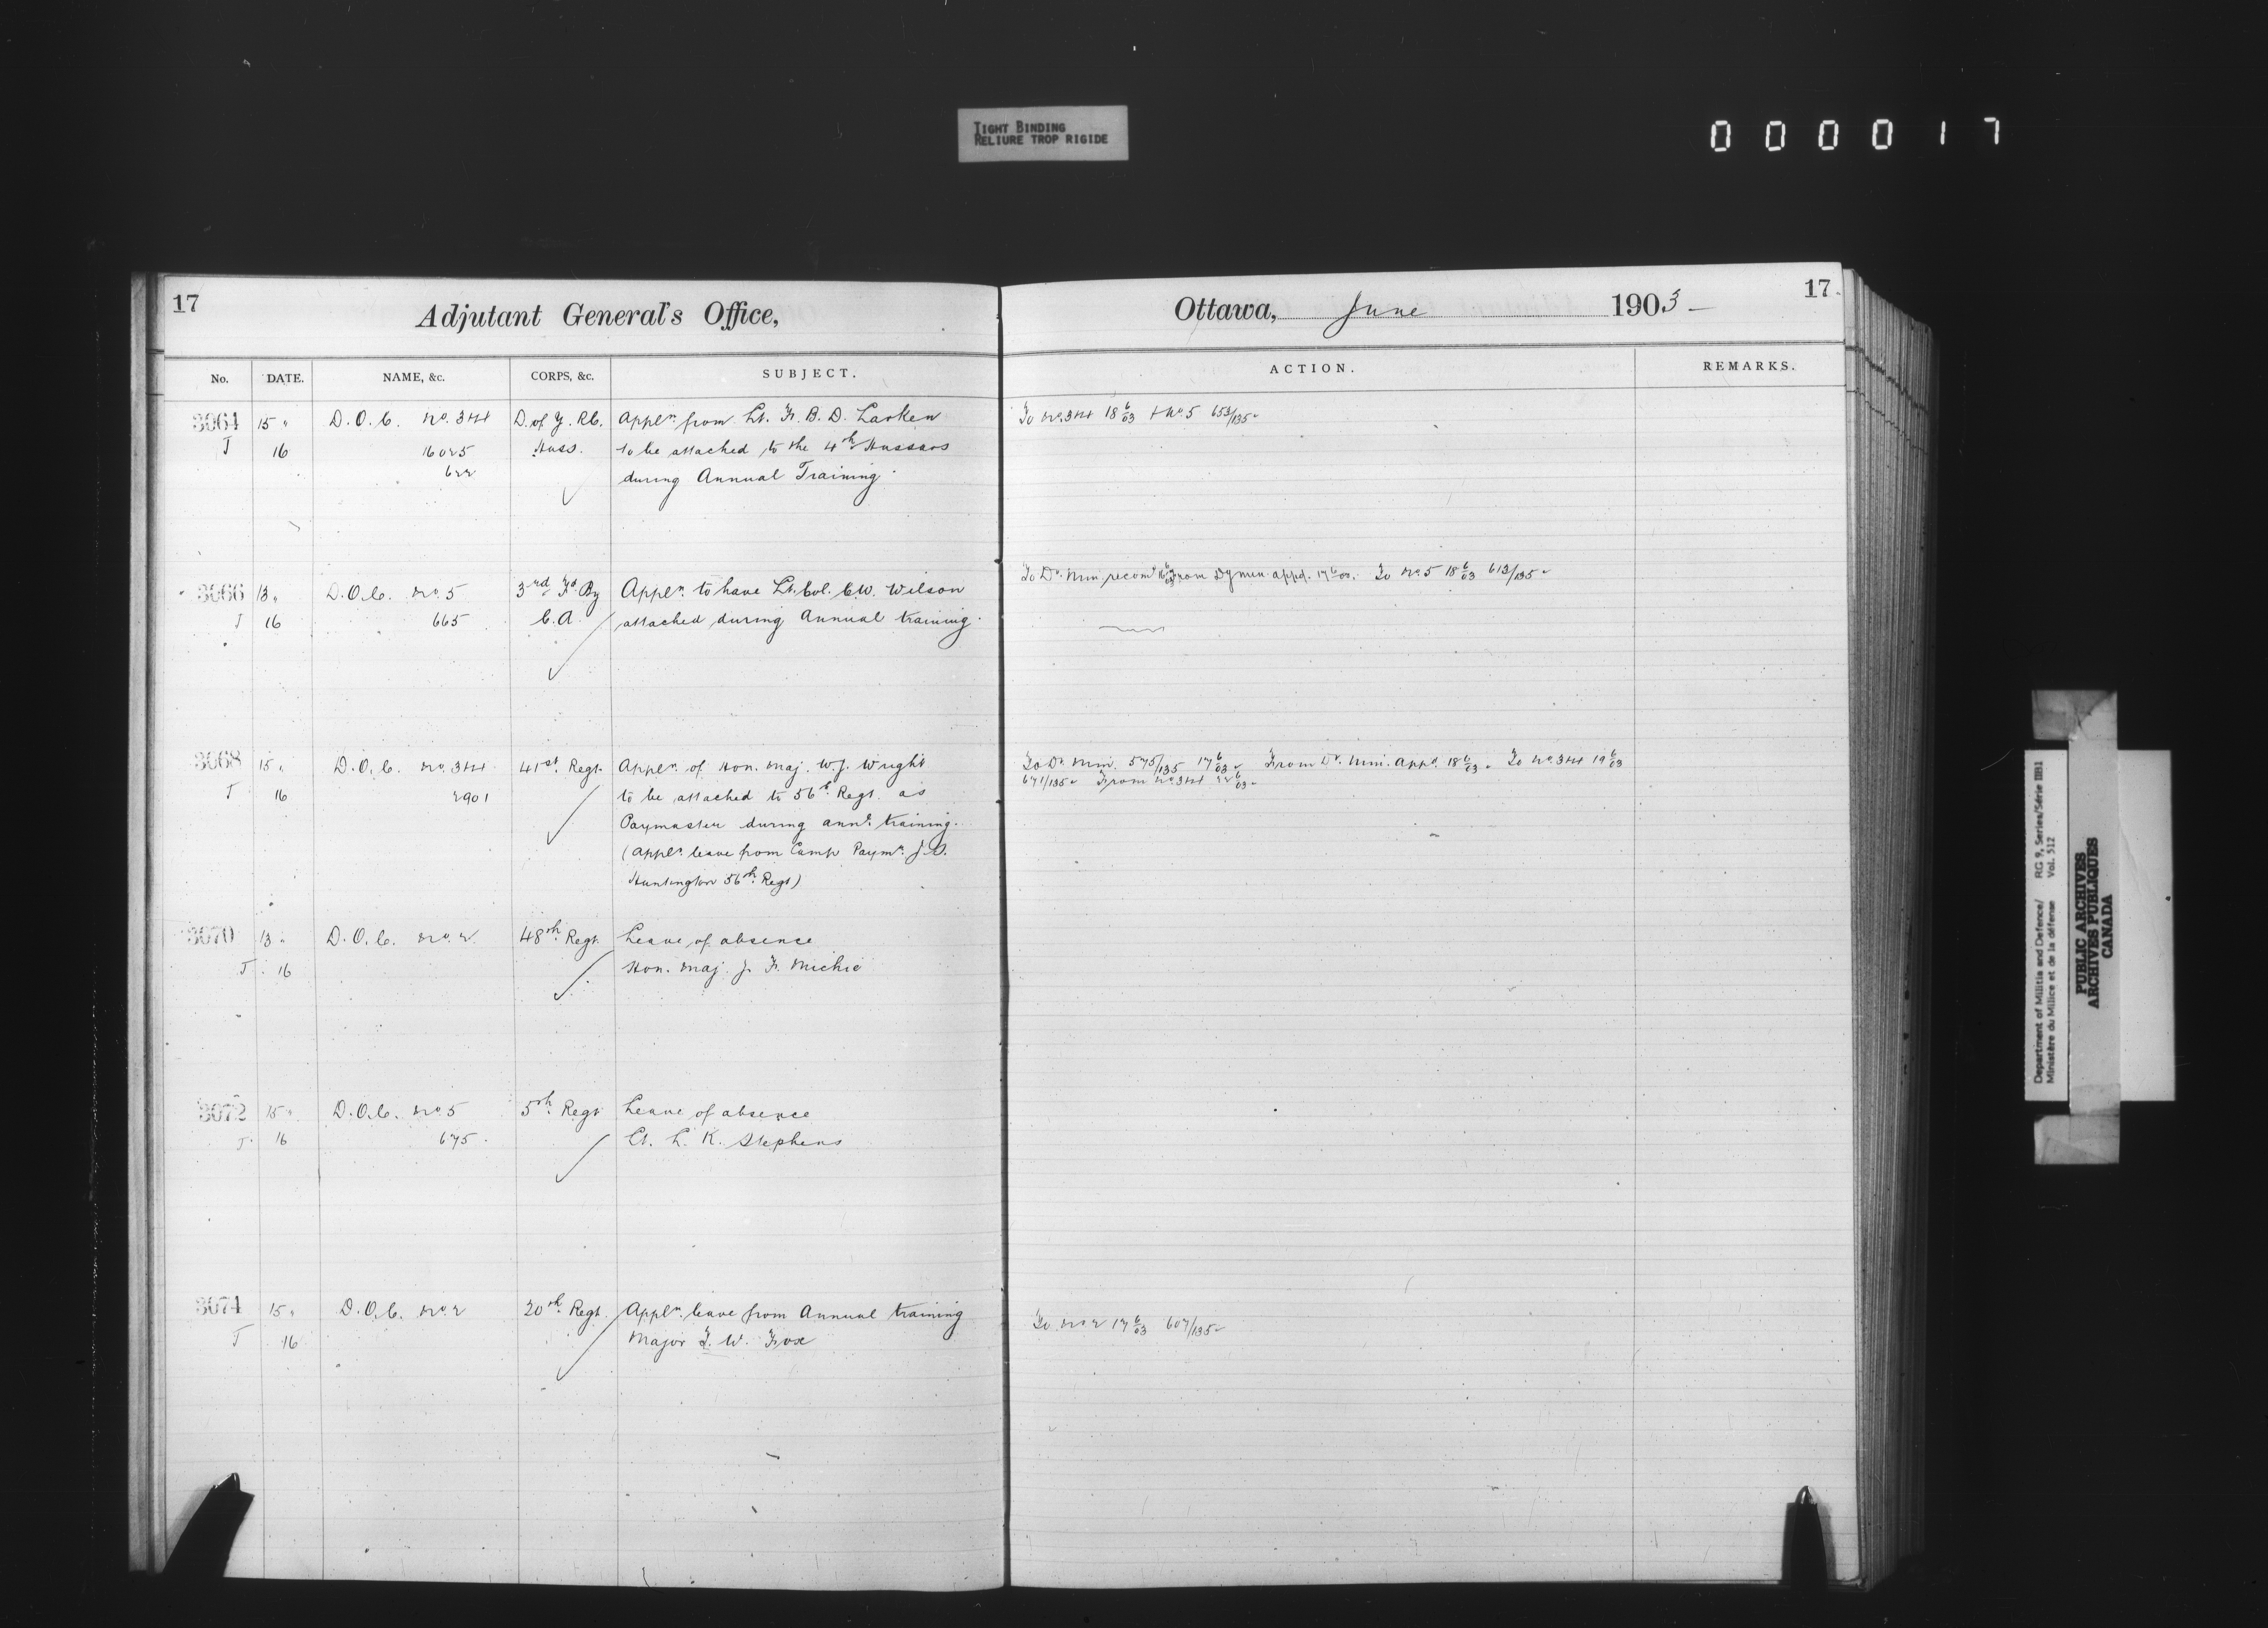 TIGHT BINDING
RELIURE TROP RIGIDE
000017
17
Adjutant General's Office,
Ottawa, June 1903 —
17
No. DATE. NAME, &c. CORPS, &c. SUBJECT. ACTION. REMARKS.
3064 15 " D.O.C. No. 3+4 D. of Y. R.C. Appln. from Lt. F. B. D. Larken To No. 3+4 18 6/03 + No 5 653/135
J 16 16025 Huss. to be attached to the 4th Hussars
622 during Annual Training.
3066 13 " D.O.C. No. 5 3rd Fd. By Appln. to have Lt. Col. C.W. Wilson To Dr. Min. recomd. 16 6/03 From Dy Min. appd. 17 6/03. To No. 5 18 6/03 613/135
J 16 665 C.A. attached during Annual training.
3068 15 " D.O.C. No. 3+4 41st. Regt. Appln. of Hon. Maj. W.J. Wright To Dr. Min. 575/135 17 6/03 From Dr. Min. Appd. 18 6/03. To No. 3+4 19 6/03
J 16 2901 to be attached to 56th. Regt. as 671/135 From No. 3+4 22 6/03
Paymaster during annl. training.
(Appln. leave from Camp Paymr. J.S.
Huntington 56th. Regt)
3070 13 " D.O.C. No. 2 48th. Regt. Leave of absence
J 16 Hon. Maj. J. F. Michie
3072 15 " D.O.C. No 5 5th. Regt Leave of absence
J 16 675. Lt. L. K. Stephens
3074 15 " D.O.C. No. 2 20th. Regt. Appln. leave from Annual training To No 2 17 6/03 607/135
J 16 Major T. W. Fox
Department of Militia and Defence/ RG 9, Series/Série IIB1
Ministère du Milice et de la défense Vol. 512
PUBLIC ARCHIVES
ARCHIVES PUBLIQUES
CANADA